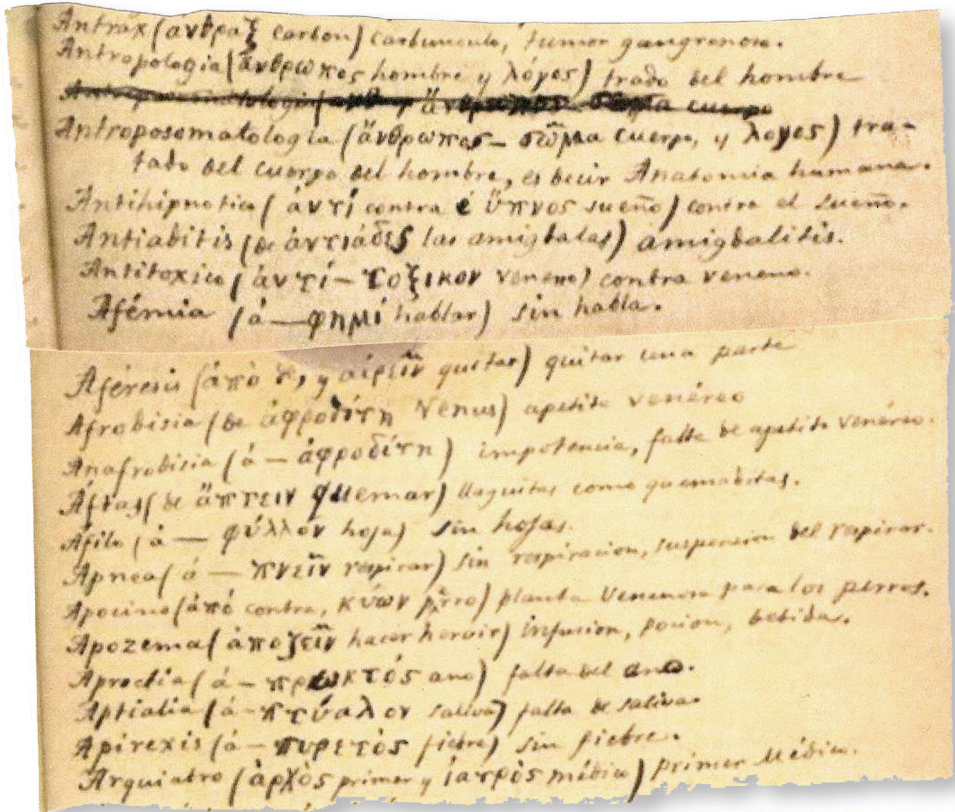 Antrax (ἄνθραξ carbon) carbunculo, tumor gangrenoso.
Antropologia (ἄνθρωπος hombre y λόγος) trado del hombre
Antroposomatologia (ἄνθρωπος – σῶμα cuerpo
Antroposomatologia (ἄνθρωπος – σῶμα cuerpo, y λογος) tra-
tado del cuerpo del hombre, es decir Anatomia humana.
Antihipnotico (ἀντί contra é ὕπνος sueño) contra el sueño.
Antiaditis (de ἀντιάδες las amigdalas) amigdalitis.
Antitoxico (ἀντί – τοξικον veneno) contra veneno.
Afémia (ἀ — φημί hablar) sin habla.
Aféresis (ἀπὸ y αἱρεῖν quitar) quitar una parte
Afrodisia (de ἀφροδίτη Venus) apetito venéreo
Anafrodisia (ἀ – ἀφροδίτη) impotencia, falta de apetito venéreo.
Áftas (de ἅπτειν quemar) llaguitas como quemaditas.
Áfilo (ἀ — φύλλον hoja) sin hojas.
Apnea (ἀ — πνεῖν respirar) sin respiracion, suspencion del respirar.
Apocino (ἀπό contra, κύων perro) planta venenosa para los perros.
Apozema (ἀποζεῖν hacer hervir) infusion, pocion, bebida.
Aproctia (ἀ – πρωκτός ano) falta del ano.
Aptialia (ἀ – πτύαλον saliva) falta de saliva.
Apirexis (ἀ – πυρετὸς fiebre) sin fiebre.
Arquiatro (ἀρχὸς primer y ἰατρὸς médico) primer Médico.